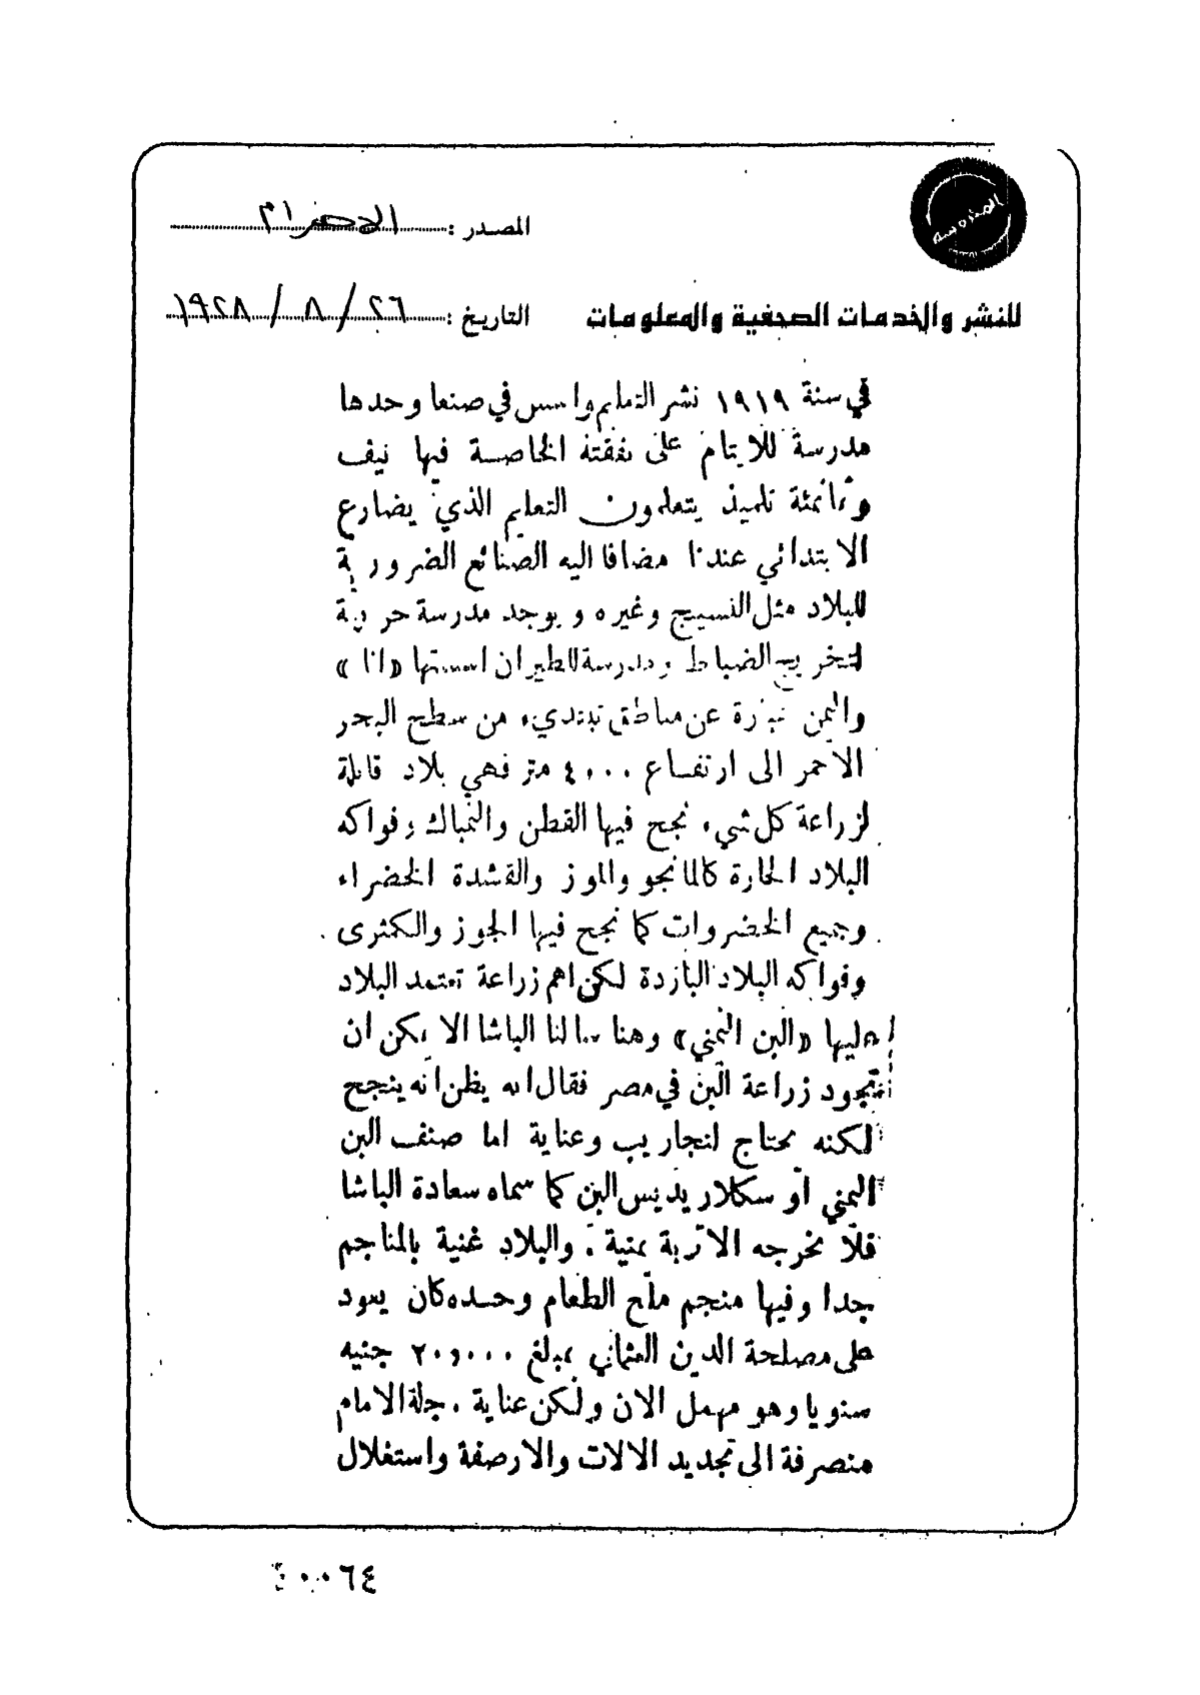 المصدر : الاهرام
للنشر والخدمات الصحفية والمعلومات
التاريخ : ٢٦ / ٨ / ١٩٢٨
في سنة ١٩١٩ نشر التعليم واسس في صنعا وحدها
مدرسة للايتام على نفقته الخاصة فيها نيف
وثمانمئة تلميذ يتعلمون التعليم الذي يضارع
الابتدائي عندنا مضافا اليه الصنائع الضرورية
للبلاد مثل النسيج وغيره ويوجد مدرسة حربية
لتخريج الضباط ومدرسة للطيران اسستها «انا»
واليمن عبارة عن مناطق تبتديء من سطح البحر
الاحمر الى ارتفاع ٤٠٠٠ متر فهي بلاد قابلة
لزراعة كل شيء نجح فيها القطن والتمباك وفواكه
البلاد الحارة كالمانجو والموز والقشدة الخضراء
وجميع الخضروات كما نجح فيها الجوز والكمثرى
وفواكه البلاد الباردة لكن اهم زراعة تعتمد البلاد
عليها «البن اليمني» وهنا سالنا الباشا الا يمكن ان
تجود زراعة البن في مصر فقال انه يظن انه ينجح
لكنه محتاج لتجاريب وعناية اما صنف البن
اليمني او سكلاريديس البن كما سماه سعادة الباشا
فلا تخرجه الا تربة يمنية . والبلاد غنية بالمناجم
جدا وفيها منجم ملح الطعام وحده كان يعود
على مصلحة الدين العثماني بمبلغ ٢٠٠٠٠٠ جنيه
سنويا وهو مهمل الان ولكن عناية جلالة الامام
منصرفة الى تجديد الالات والارصفة واستغلال